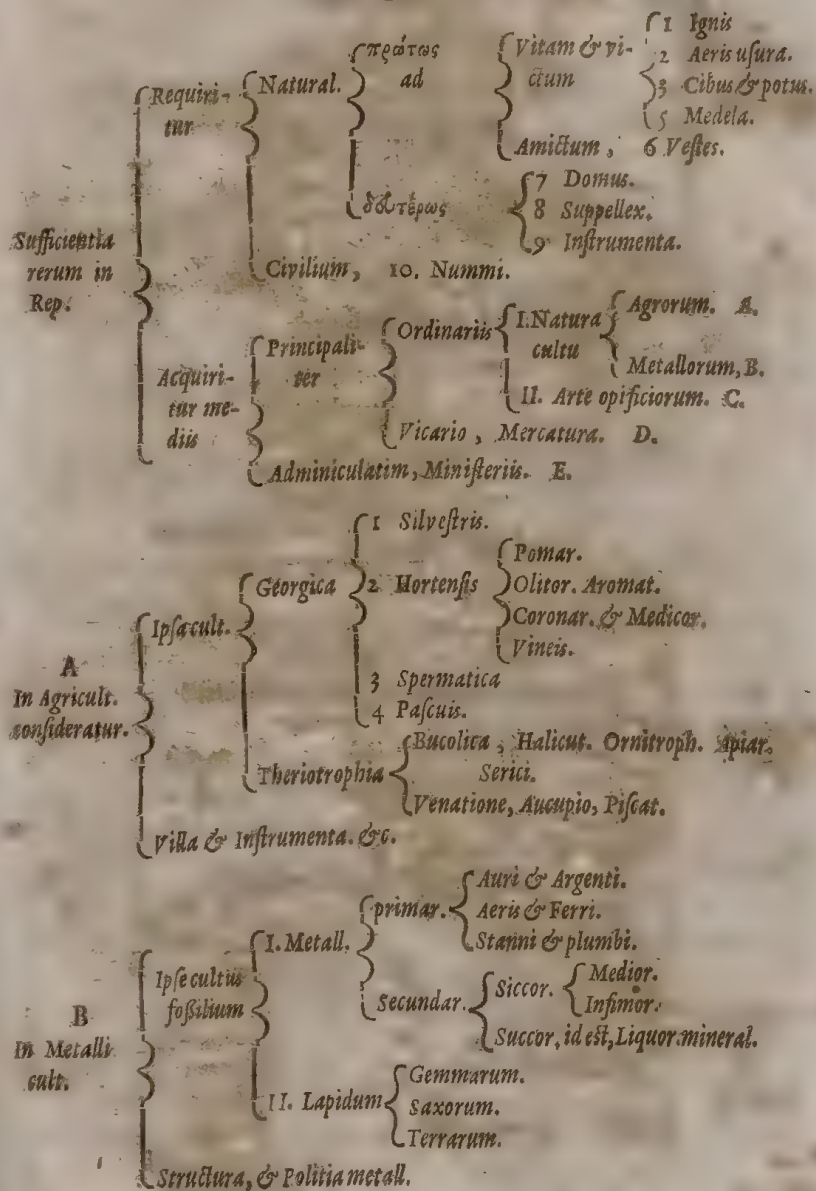 Sufficientia
rerum in
Rep.
Requiri-
tur
Natural.
πρώτως
ad
Vitam & vi-
ctum
1 Ignis
2 Aeris uſura.
3 Cibus & potus.
5 Medela.
Amictum, 6 Veſtes.
δευτέρως
7 Domus.
8 Suppellex.
9 Inſtrumenta.
Civilium, 10. Nummi.
Acquiri-
tur me-
diis
Principali-
ter
Ordinariis
I. Natura
cultu
Agrorum. A.
Metallorum, B.
II. Arte opificiorum. C.
Vicario, Mercatura. D.
Adminiculatim, Miniſteriis. E.
A
In Agricult.
conſideratur.
Ipſa cult.
Georgica
1 Silveſtris.
2 Hortenſis
Pomar.
Olitor. Aromat.
Coronar. & Medicor.
Vineis.
3 Spermatica
4 Paſcuis.
Theriotrophia
Bucolica, Halicut. Ornitroph. Apiar.
Serici.
Venatione, Aucupio, Piſcat.
Villa & Inſtrumenta. &c.
B
In Metalli
cult.
Ipſe cultus
foßilium
I. Metall.
primar.
Auri & Argenti.
Aeris & Ferri.
Stanni & plumbi.
Secundar.
Siccor.
Medior.
Infimor.
Succor, id eſt, Liquor. mineral.
II. Lapidum
Gemmarum.
Saxorum.
Terrarum.
Structura, & Politia metall.